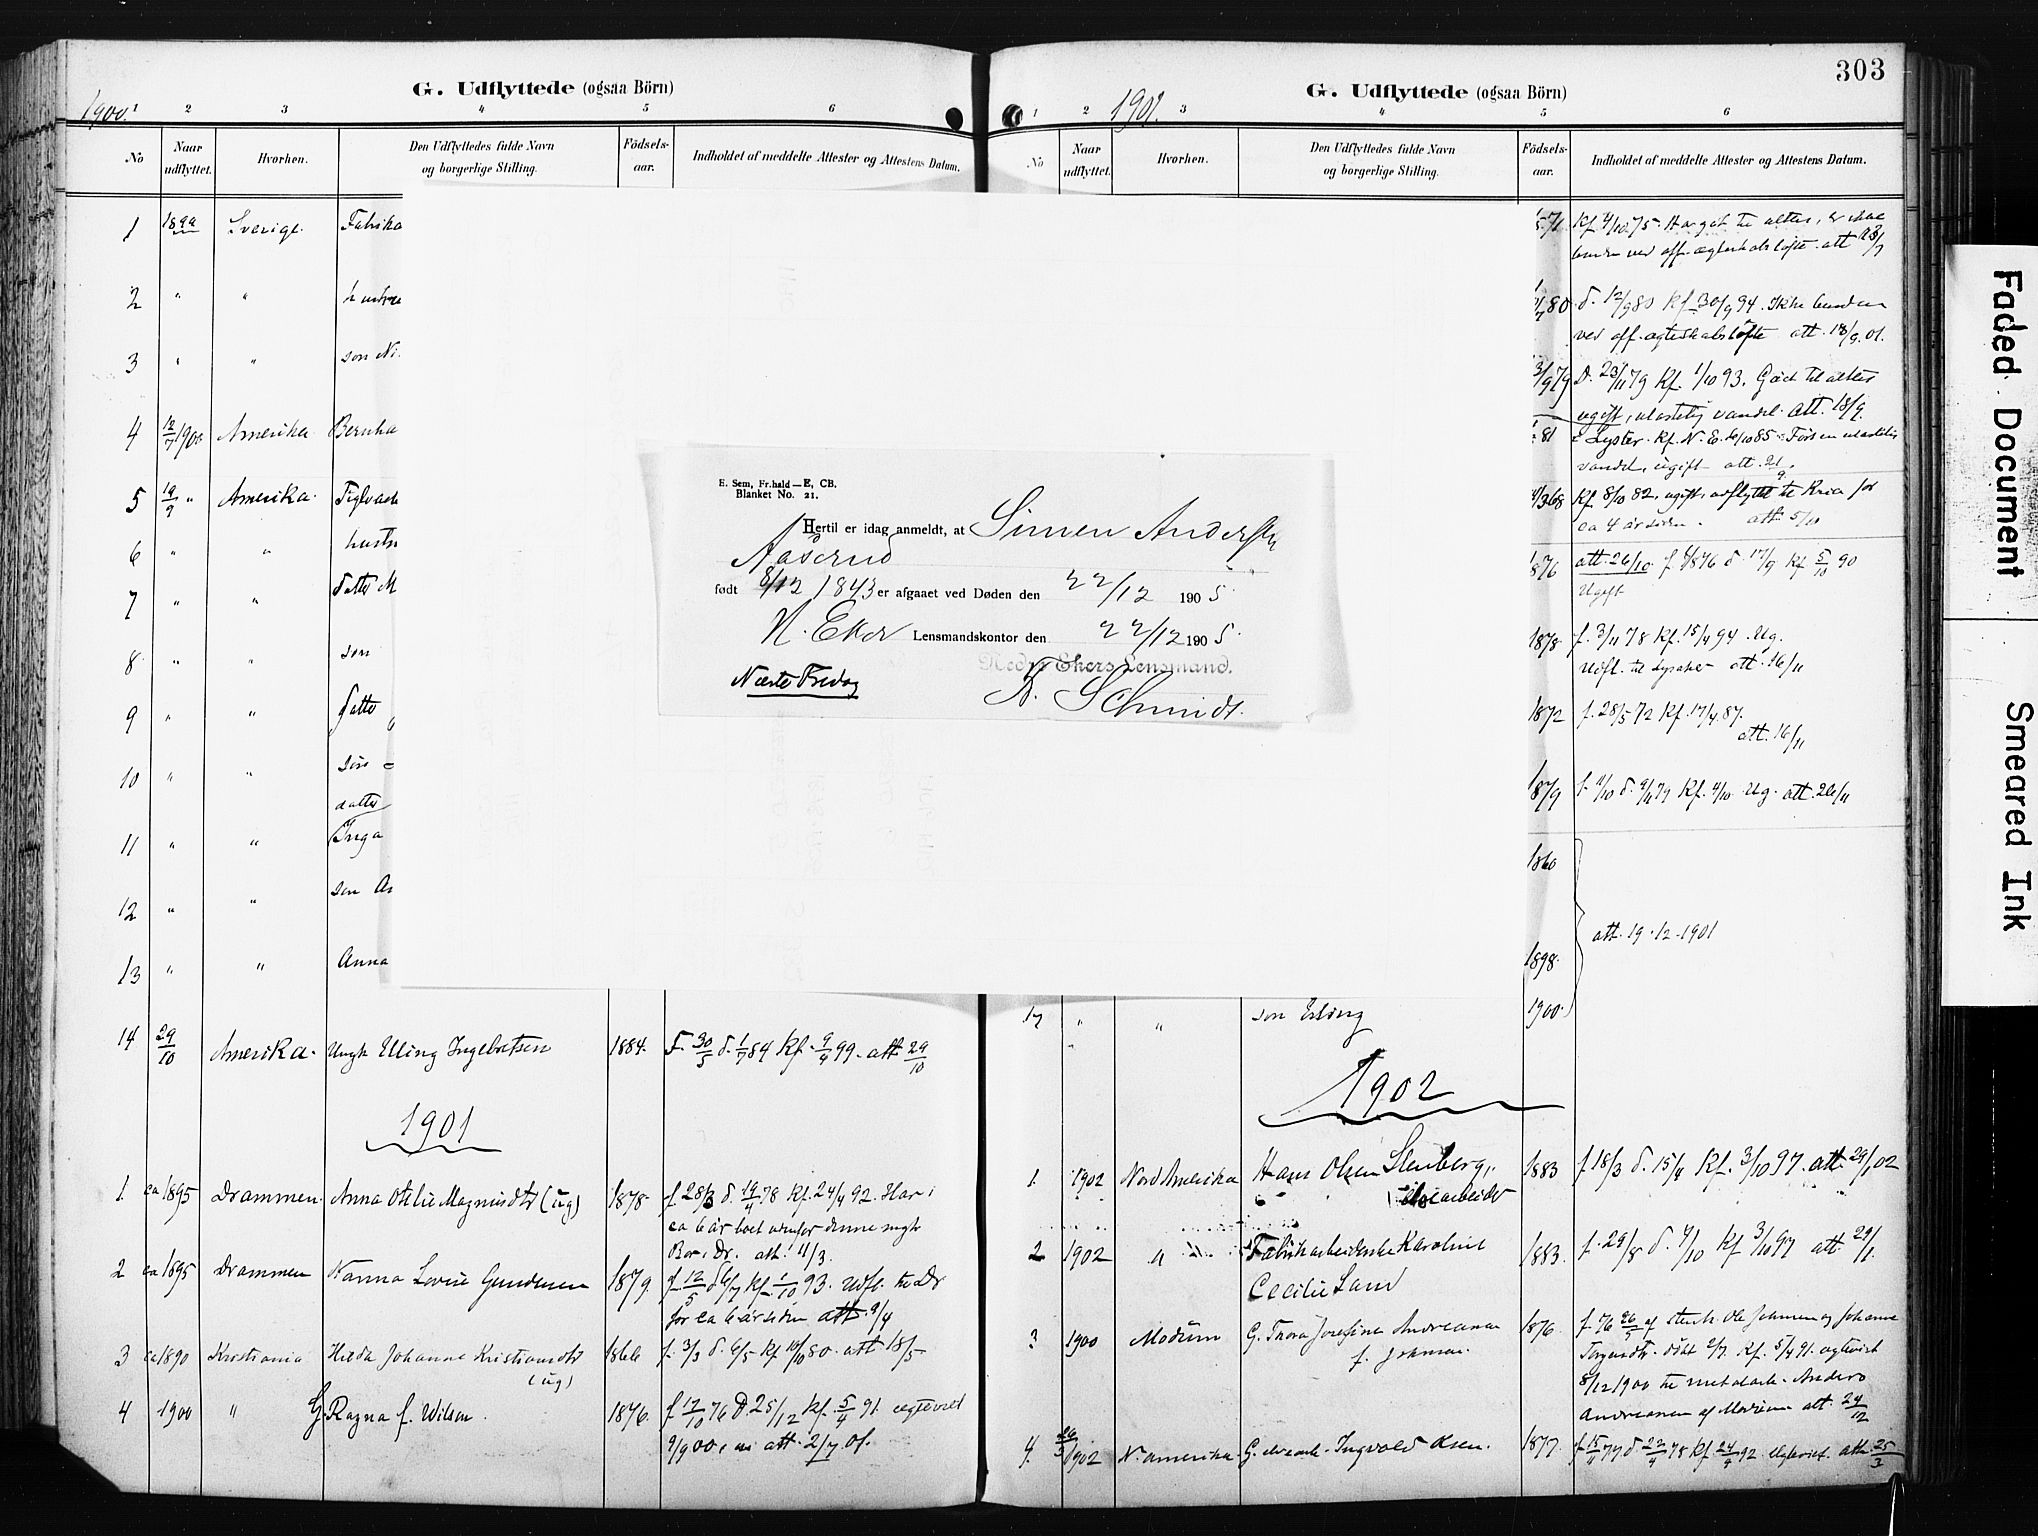 303
G. Udflyttede (ogsaa Börn)
1900.
1 2 3 4 5 6
No
Naar udflyttet.
Hvorhen.
Den Udflyttedes fulde Navn og borgerlige Stilling.
Födsels-aar.
Indholdet af meddelte Attester og Attestens Datum.
1 1899 Sverige. Fabrika
2 " " hustru
3 " " søn Ni
4 12/7 1900 Amerika Bernha
5 19/9 " Amerika.
6 " " hustr
7 " " datter M
8 " " søn
9 " " datter
10 " " søn
datter
11 " " Inga
12 " " søn A
13 " " Anna
14 29/10 Amerika. Ungk Elling Ingebretsen 1884. F. 30/5 d. 1/7 84 Kf. 9/4 99. att 29/10
1901
1 ca 1895 Drammen. Anna Otilie Magnusdtr (ug) 1878. f 28/3 d. 19/4 78 Kf. 24/4 92. Har i
ca 6 år boet udenfor denne mgh
Bor i Dr. att. 11/3.
2 ca 1895 Drammen Nanna Lovise Gundersen 1879. f. 12/5 d 6/7 Kf. 1/10 93. Udfl. til Dr
for ca 6 år siden att. 9/4
3 ca 1890 Kristiania Hilda Johanne Kristiansdtr (ug) 1866 f. 3/3 d. 6/5 Kf 10/10 80. att 18/5
4 1900 " G. Ragna f. Wilson. 1876. f 17/10 76 d 25/12 kf. 5/4 91. ægteviet
9/9 00, att. 2/7 01.
E. Sem, Fr.hald—E, CB.
Blanket No. 21.
Hertil er idag anmeldt, at Simen Andersen
Aaserud
født 8/12 1843 er afgaaet ved Døden den 22/12 1905.
N. Eker Lensmandskontor den 22/12 1905.
Nedre Ekers Lensmand.
Næste Fredag
N. Schmidt.
G. Udflyttede (ogsaa Börn)
1901.
1 2 3 4 5 6
No
Naar udflyttet.
Hvorhen.
Den Udflyttedes fulde Navn og borgerlige Stilling.
Födsels-aar.
Indholdet af meddelte Attester og Attestens Datum.
71. Kf. 4/10 75. Har gåt til alters, er ikke
bunden ved off. ægteskabsløfte. att 23/7
80 d. 12/9 80 Kf 30/9 94. Ikke bunden
ved off. ægteskabsløfte att. 18/9. 01.
79 D. 23/11 79 Kf. 1/10 93. Gået til alters
ugift, ulastelig vandel. att. 18/9.
81 Lyster. Kf. N. E. 4/10 85. Ført en ulastelig
vandel, ugift. att. 21/9.
4/3 68 Kf. 8/10 82, ugift, udflyttet til Kria for
ca 4 år siden. att. 5/10
1876 att. 26/10. f 4/8 76 d. 17/9 Kf 5/10 90
Ugift
1878. f. 3/11 78 Kf. 15/4 94. Ug.
Udfl. til Lysaker att. 16/11
1872 f. 28/5 72 Kf. 17/4. 87.
att. 16/11
1879 f. 11/10 d. 9/11 79 Kf. 4/10 Ug. att. 26/11
1860
1898.
att. 19-12-1901
17 " " søn Erling 1900.
1902
1. 1902 Nord Amerika Hans Olsen Stenberg, 1883 f 18/3 d. 15/4 Kf. 3/10 97. att. 29/1 02
2 1902 " Fabrikarbeiderske Karoline
Cecilie Lund 1883. f. 29/8 d. 4/10 Kf 3/10 97 att 29/1.
3 1900 Modum G. Thora Josefine Andreana
f. Johnsen. 1876. f. 76 26/5 af stenh. Ole Johnsen og Johanne
Torgersdtr. døbt 2/7. Kf. 5/4 91. ægteviet
8/12 1900 til metalarb. Anders
Andreasen af Modum att. 24/12
4. 26/3 1902 N. amerika. G. Ingvald Olsen. 1877. f 15/11 77 d 22/4 78 Kf 24/4 92. Ugteviet. att 25/3
Faded Document
Smeared Ink